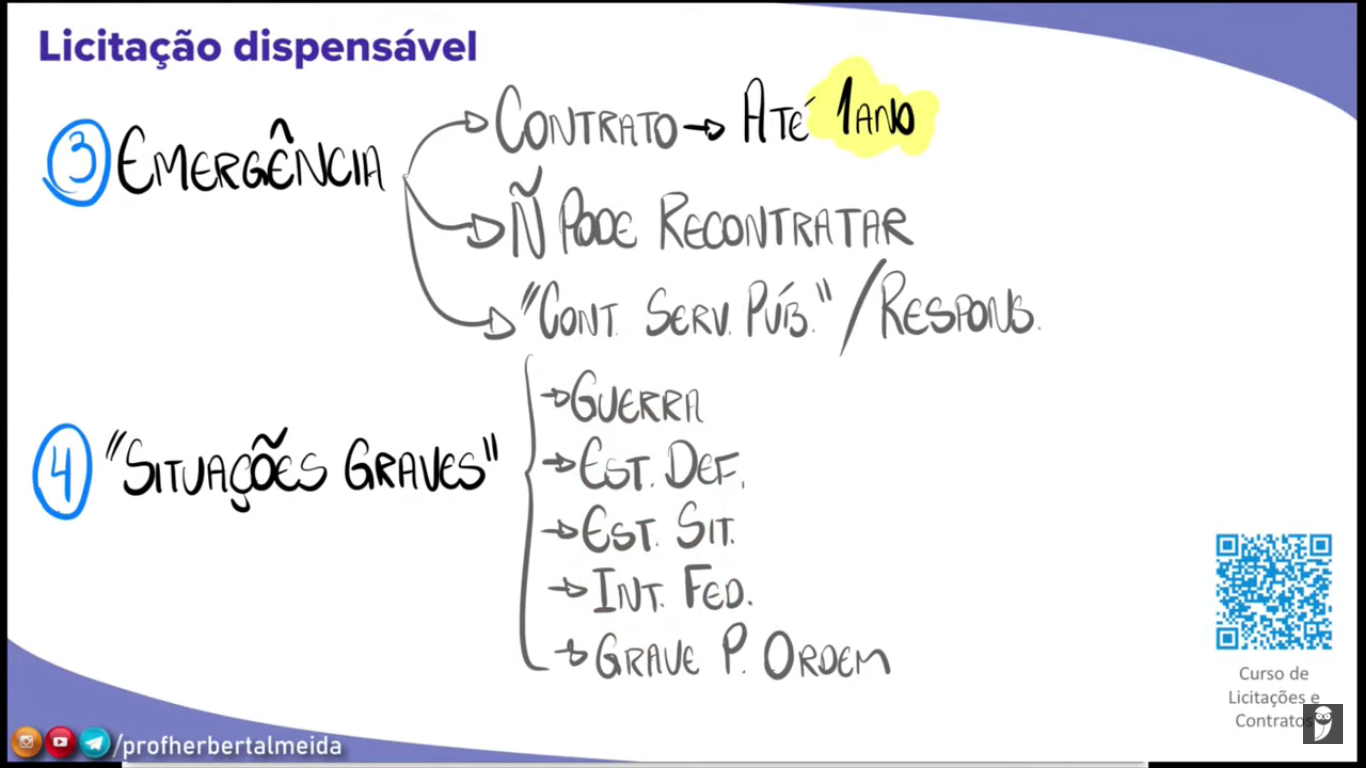 Licitação dispensável
3 EMERGÊNCIA
CONTRATO → ATÉ 1 ANO
Ñ PODE RECONTRATAR
"CONT. SERV. PÚB." / RESPONS.
4 "SITUAÇÕES GRAVES"
→ GUERRA
→ EST. DEF.
→ EST. SIT.
→ INT. FED.
→ GRAVE P. ORDEM
Curso de
Licitações e
Contratos
/profherbertalmeida